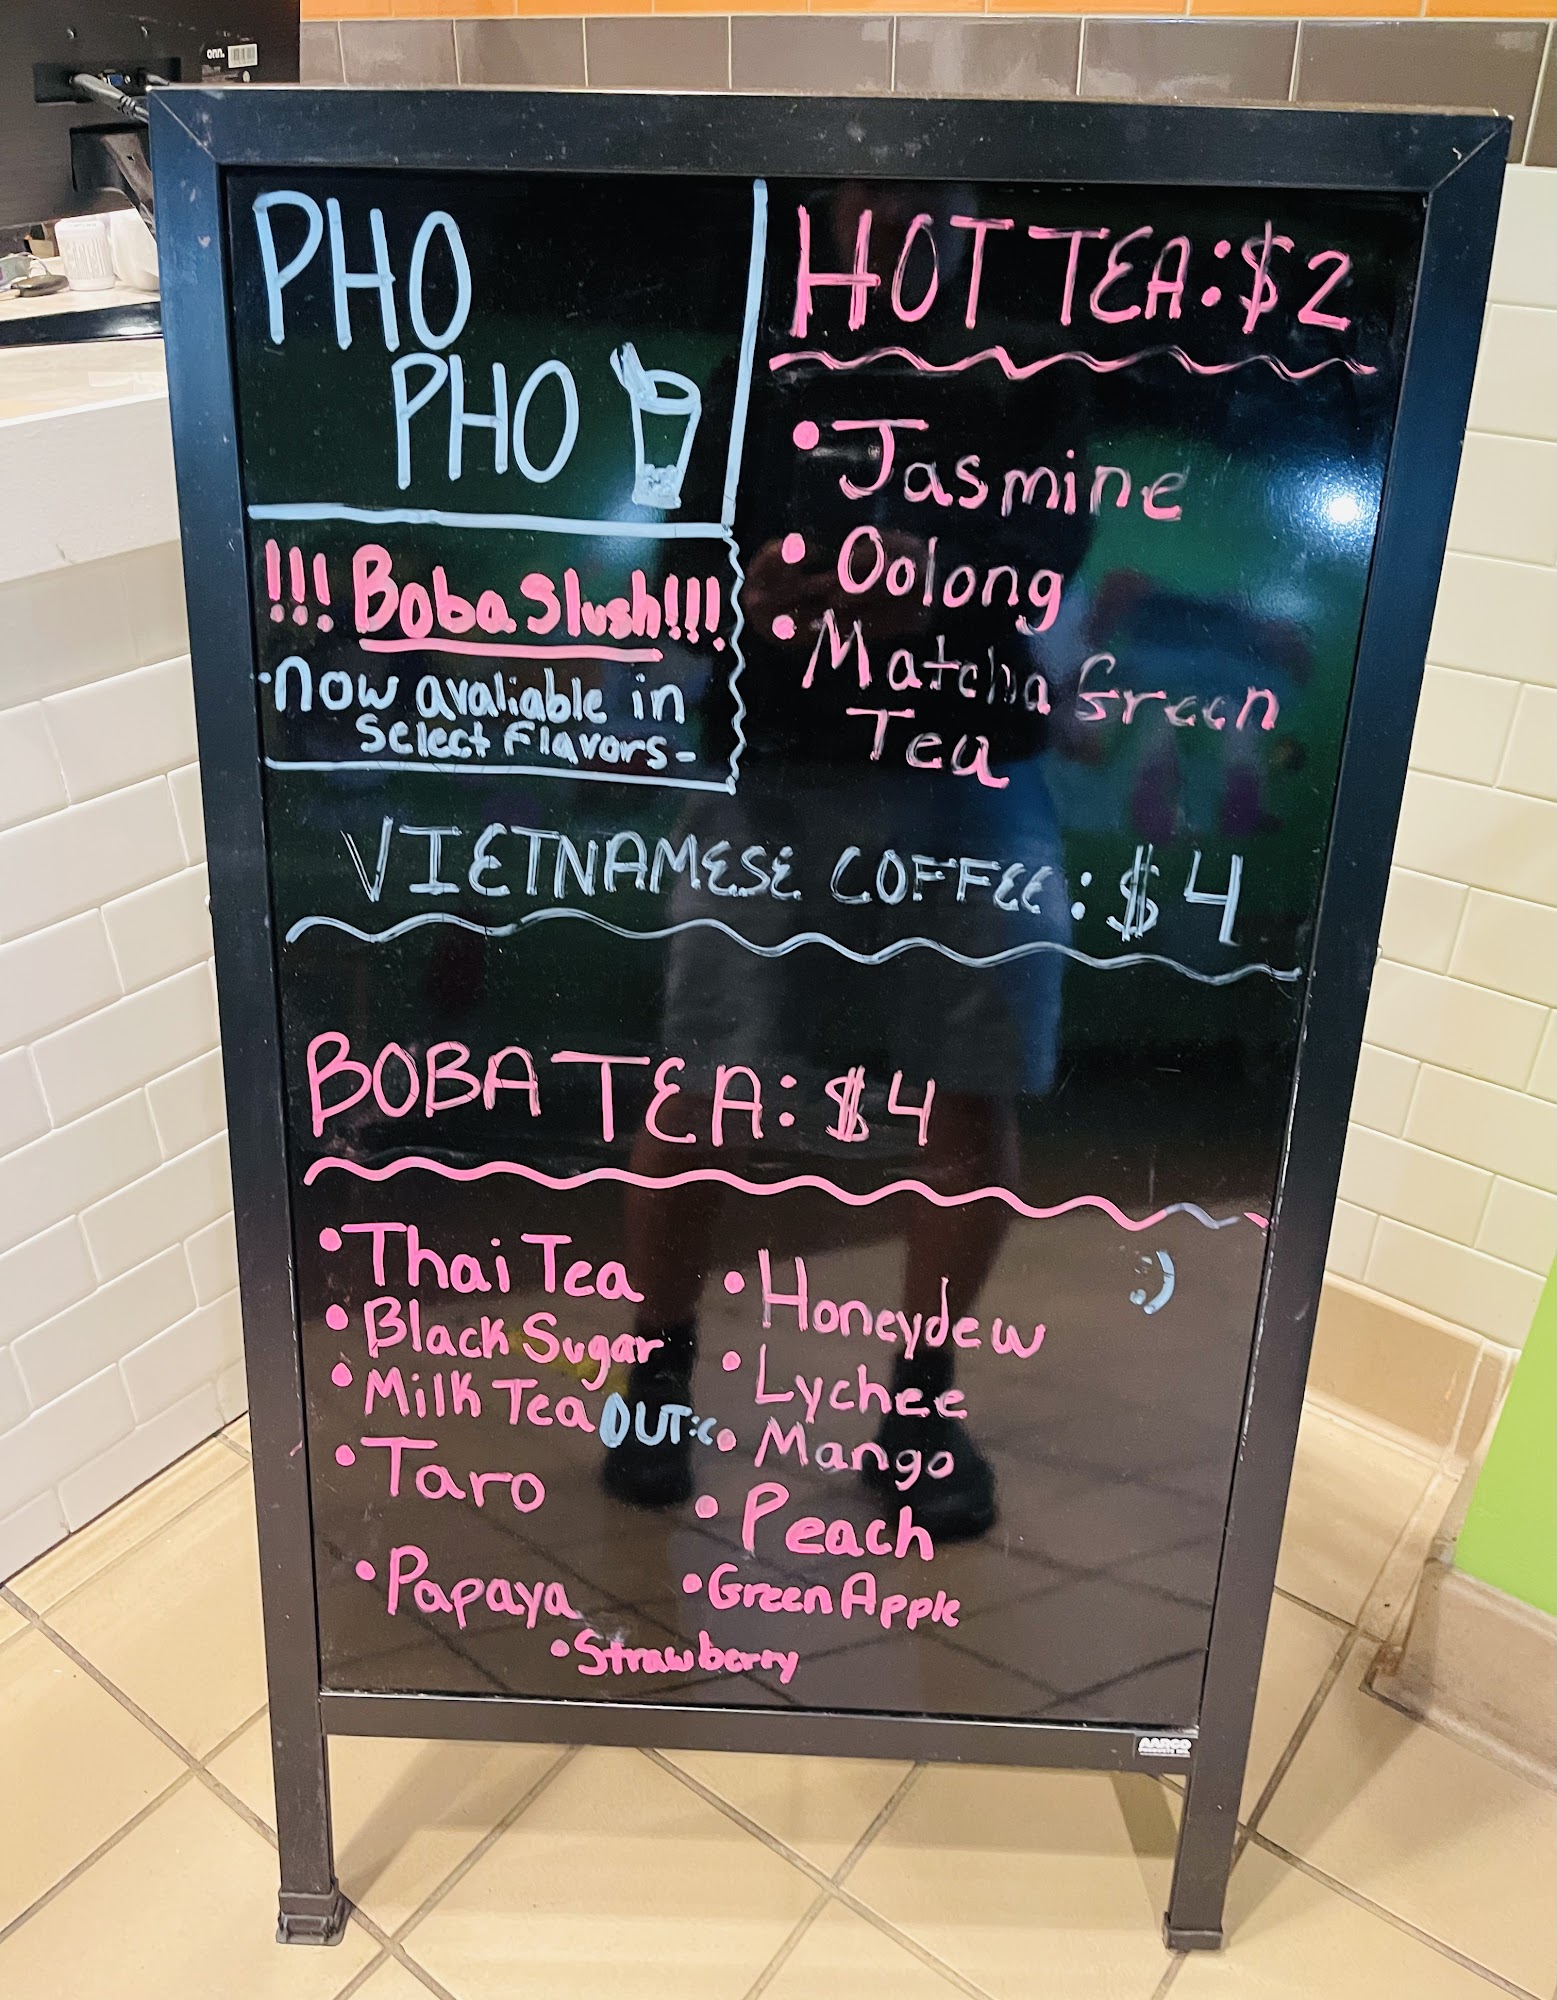 onn.
PHO
PHO
!!! Boba Slush!!!
-now avaliable in
select Flavors-
HOT TEA: $2
• Jasmine
• Oolong
• Matcha Green
Tea
VIETNAMESE COFFEE: $4
BOBA TEA: $4
• Thai Tea
• Black Sugar
• Milk Tea OUT :c
• Taro
• Papaya
• Strawberry
:)
• Honeydew
• Lychee
• Mango
• Peach
• Green Apple
AARCO
PRODUCTS INC.